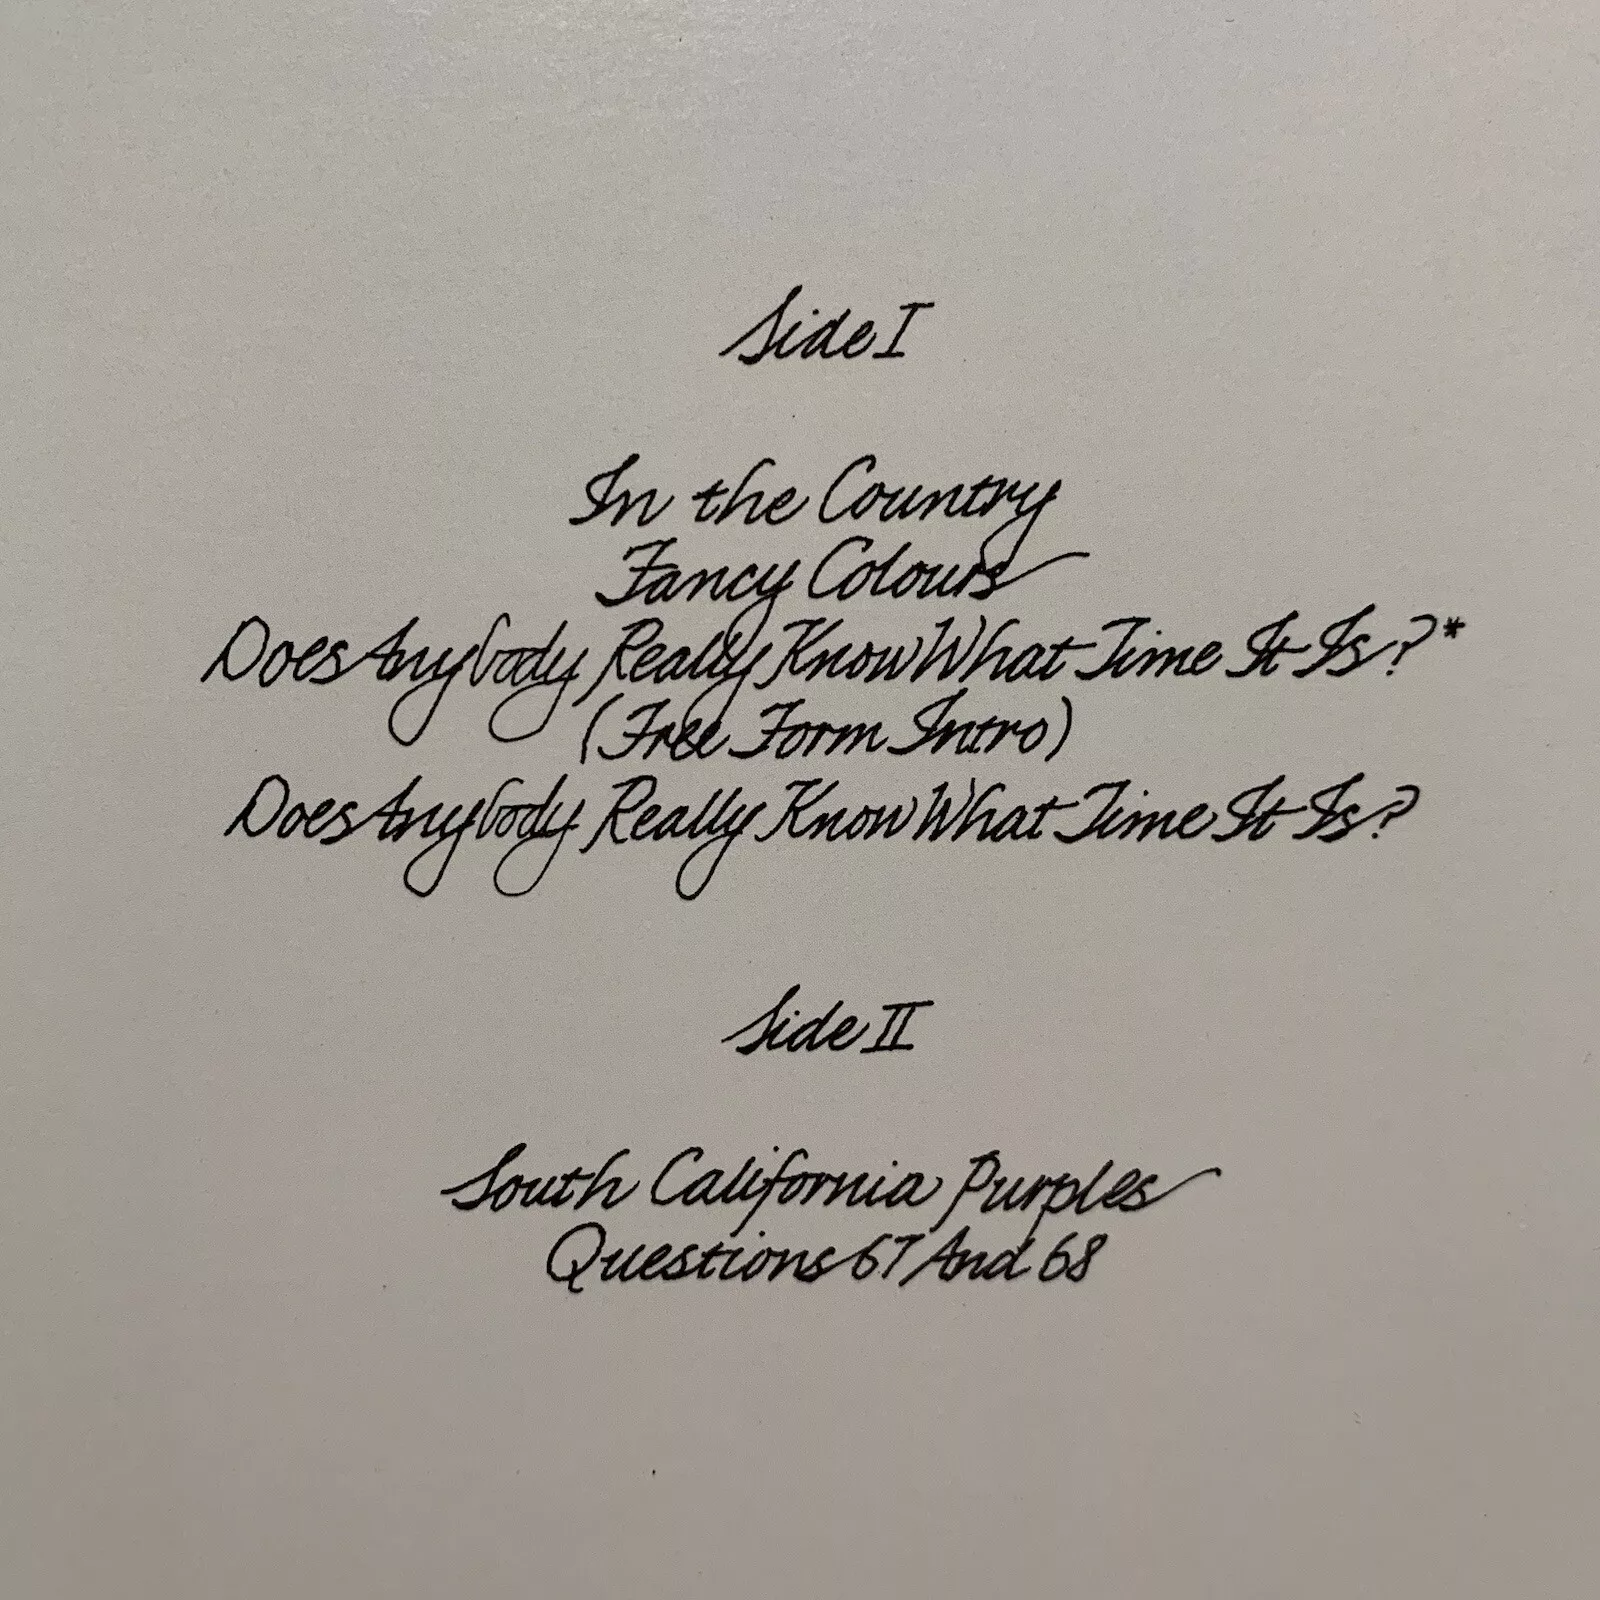 Side I
In the Country
Fancy Colours
Does Anybody Really Know What Time It Is?*
(Free Form Intro)
Does Anybody Really Know What Time It Is?
Side II
South California Purples
Questions 67 And 68